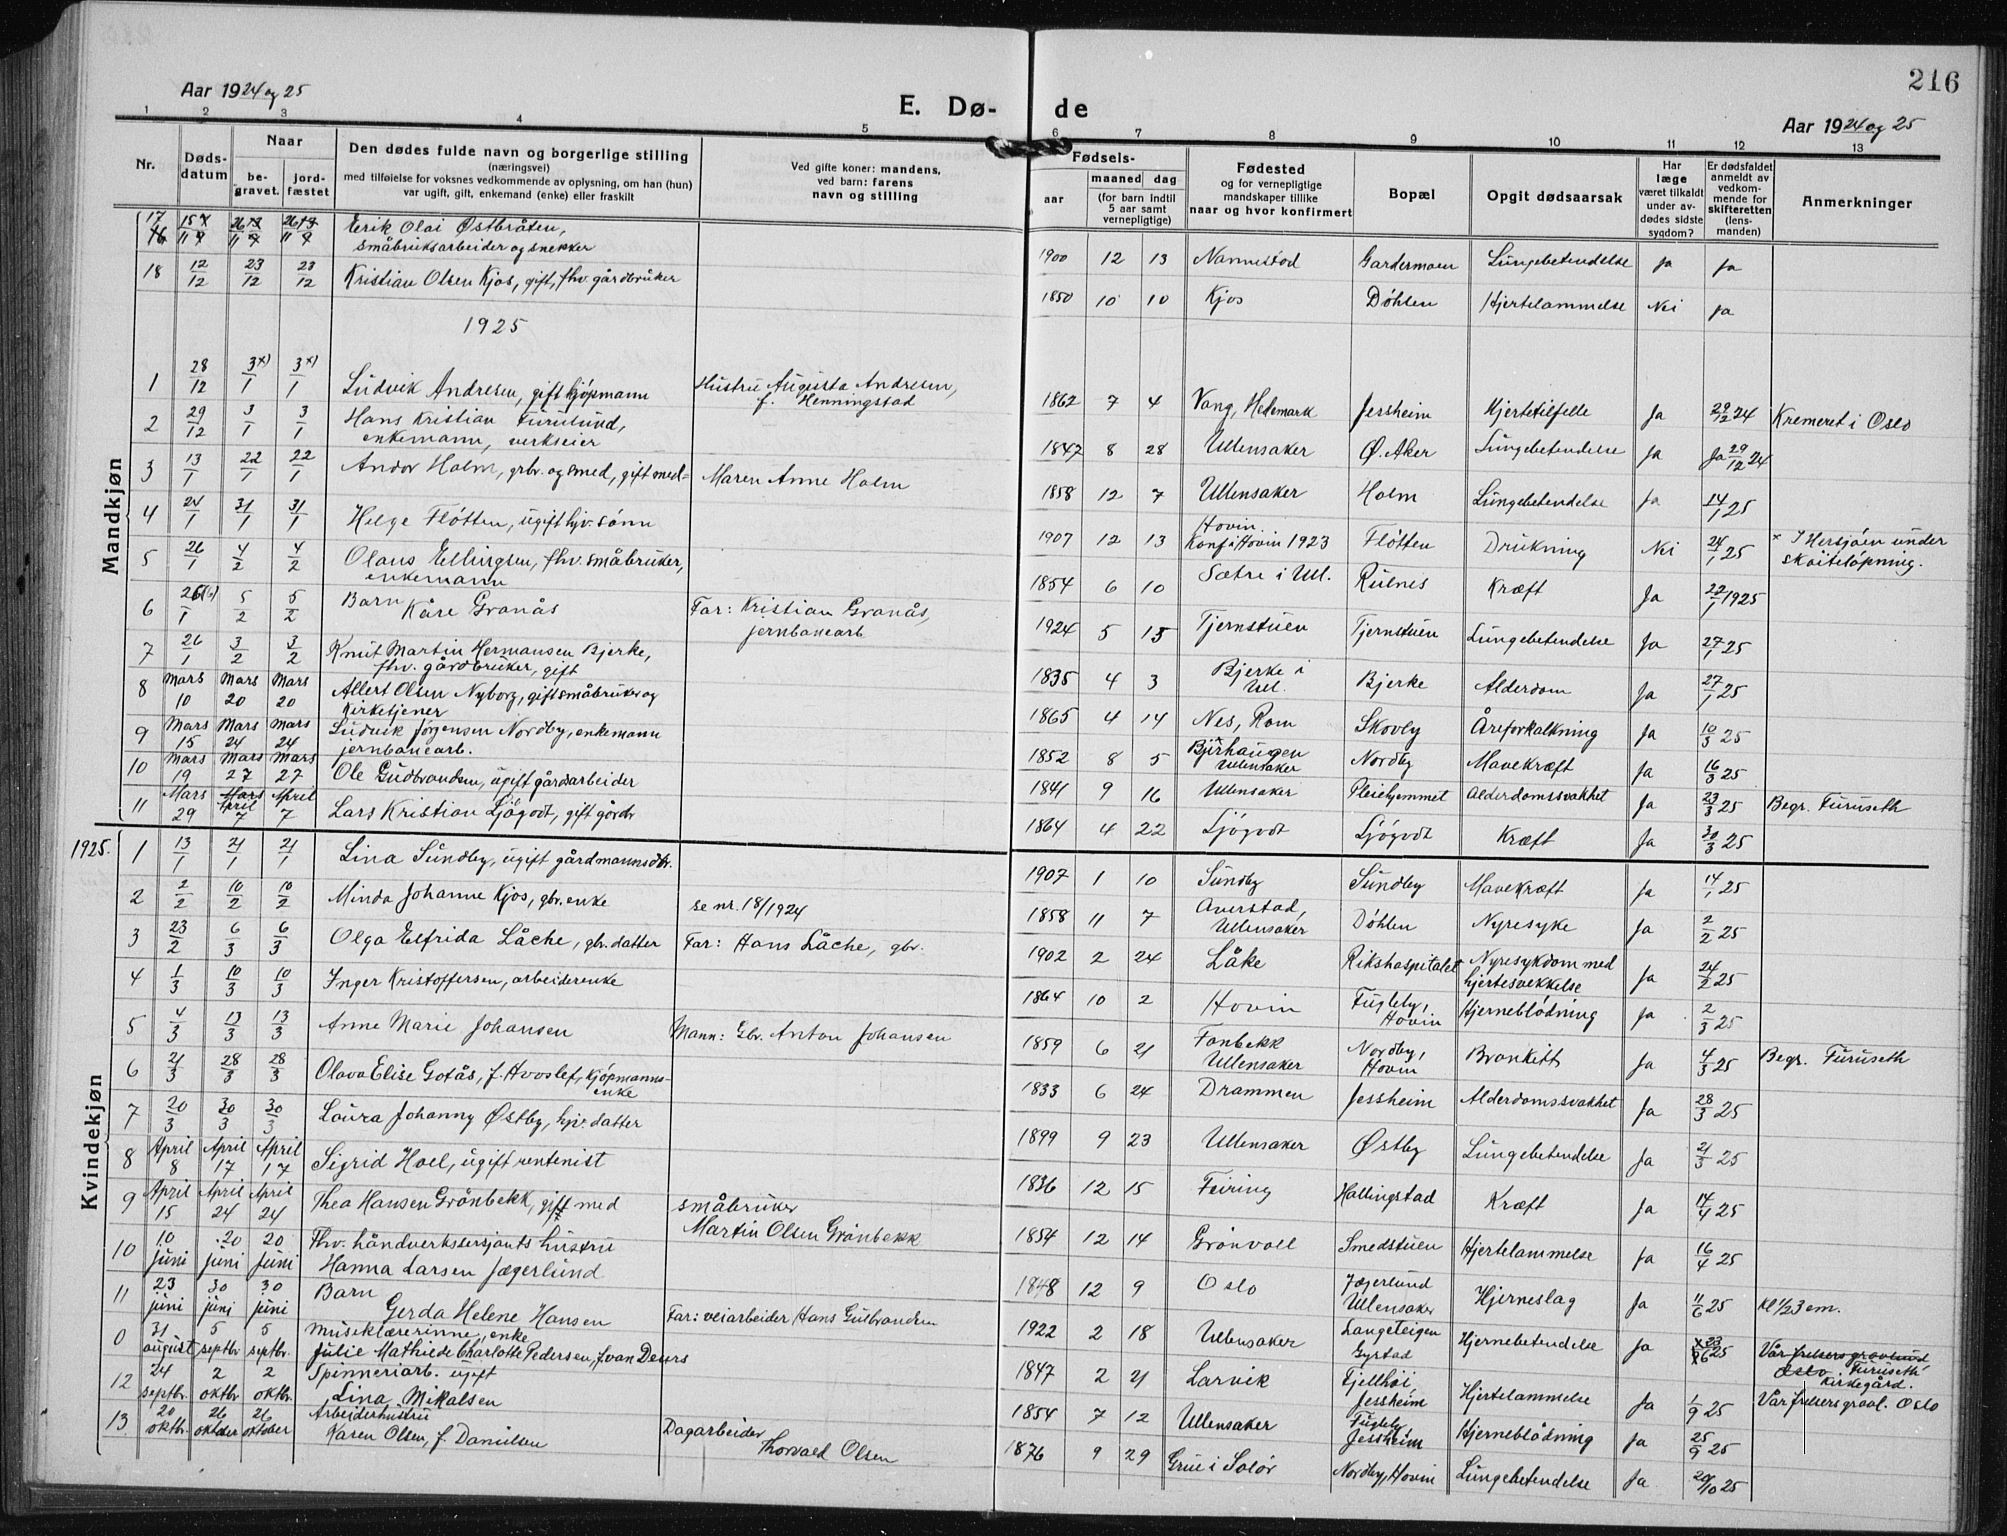 216
Aar 1924 og 25
E. Dø- de
Aar 1924 og 25
1 2 3 4 5 6 7 8 9 10 11 12 13
Nr. Døds-datum Naar be-gravet. jord-fæstet
Den dødes fulde navn og borgerlige stilling
(næringsvei)
med tilføielse for voksnes vedkommende av oplysning, om han (hun)
var ugift, gift, enkemand (enke) eller fraskilt
Ved gifte koner: mandens,
ved barn: farens
navn og stilling
Fødsels- aar maaned dag
(for barn indtil
5 aar samt
vernepligtige)
Fødested
og for vernepligtige
mandskaper tillike
naar og hvor konfirmert
Bopæl
Opgit dødsaarsak
Har
læge
været tilkaldt
under av-
dødes sidste
sygdom?
Er dødsfaldet
anmeldt av
vedkom-
mende for
skifteretten
(lens-
manden)
Anmerkninger
Mandkjøn
17 Erik Olai Østbråten, småbruksarbeider og snekker 1900 12 13 Nannestad Gardermoen Lungebetendelse ja ja
18 12/12 23/12 23/12 Kristian Olsen Kjos, gift, fhv. gårdbruker 1850 10 10 Kjos Døhlen Hjertelammelse Nei ja
1925
1 28/12 3x)/1 3x)/1 Ludvik Andresen, gift kjøpmann Hustru Augusta Andresen, f. Henningstad 1862 7 4 Vang, Hedemark Jessheim Hjertetilfelle Ja 29/12 24 Kremeret i Oslo
2 29/12 3/1 3/1 Hans Kristian Furulund, enkemann, verkseier 1847 8 28 Ullensaker Ø. Aker Lungebetendelse ja Ja 29/12 24
3 13/1 22/1 22/1 Andor Holm, grbr. og smed, gift med- Maren Anne Holm 1858 12 7 Ullensaker Holm Lungebetendelse ja 14/1 25
4 24/1 31/1 31/1 Helge Fløtten, ugift hjv. sønn 1907 12 13 Hovin. Konf. i Hovin 1923 Fløtten Drukning Nei 24/1 25 x I Hersjøen under skøiteløpning.
5 26/1 4/2 4/2 Olaus Ellingsen, fhv. småbruker, enkemann 1854 6 10 Sætre i Ul. Rulnes Kræft Ja 22/1 1925
6 5/2 5/2 Barn Kåre Granås Far: Kristian Granås, jernbanearb. 1924 5 15 Tjernstuen Tjernstuen Lungebetendelse Ja 27/1 25
7 26/1 3/2 3/2 Knut Martin Hermansen Bjerke, fhv. gårdbruker, gift 1835 4 3 Bjerke i Ul. Bjerke Alderdom Ja 27/1 25
8 Mars 10 Mars 20 Mars 20 Allert Olsen Nyborg, gift småbruker og Kirketjener 1865 4 14 Nes, Rom Skovly Åreforkalkning Ja 10/3 25
9 Mars 15 Mars 24 Mars 24 Ludvik Jørgensen Nordby, enkemann jernbanearb. 1852 8 5 Ullensaker Nordby Mavekræft Ja 16/3 25
10 Mars 19 Mars 27 Mars 27 Ole Gudbrandsen, ugift gårdsarbeider 1841 9 16 Ullensaker Pleiehjemmet Alderdomssvakhet Ja 23/3 25 Begr. Furuseth
11 Mars 29 Mars April 7 April 7 Lars Kristian Ljøgodt, gift gårdbr 1864 4 22 Ljøgodt Ljøgodt Kræft Ja 30/3 25
1925.
Kvindekjøn
1 13/1 21/1 21/1 Lina Sundby, ugift gårdmannsdtr. 1907 1 10 Sundby Sundby Mavekræft Ja 14/1 25
2 2/2 10/2 10/2 Minda Johanne Kjos, gbr. enke se nr. 18/1924 1858 11 7 Averstad, Ullensaker Døhlen Nyresyke Ja 2/2 25
3 23/2 6/3 6/3 Olga Elfrida Låche, gbr. datter Far: Hans Låche, gbr. 1902 2 24 Låke Rikshospitalet Nyresykdom med hjertesvekkelse Ja 24/2 25
4 1/3 10/3 10/3 Inger Kristoffersen, arbeiderenke 1864 10 2 Hovin Fugleby, Hovin Hjerneblødning Ja 2/3 25
5 4/3 13/3 13/3 Anne Marie Johansen Mann: Gbr. Anton Johansen 1859 6 21 Fonbekk Ullensaker Nordby, Hovin Bronkitt Ja 4/3 25 Begr. Furuseth
6 21/3 28/3 28/3 Olava Elise Gotås, f. Hvoslef, kjøpmanns-enke 1833 6 24 Drammen Jessheim Alderdomssvakhet Ja 28/3 25
7 20/3 30/3 30/3 Laura Johanny Østby, hjv. datter 1899 9 23 Ullensaker Østby Lungebetendelse Ja 21/3 25
8 April 8 April 17 April 17 Sigrid Hoel, ugift rentenist 1836 12 15 Feiring Hallingstad Kræft Ja 14/4 25
9 April 15 April 24 April 24 Thea Hansen Grønbekk, gift med småbruker Martin Olsen Grønbekk 1854 12 14 Grønvoll Smedstuen Hjertelammelse Ja 16/4 25
10 10 Juni 20 juni 20 Juni Fhv. håndverkssersjants hustru Hanna Larsen Jægerlund 1848 12 9 Oslo Jægerlund Ullensaker Hjerneslag Ja 11/6 25 Kl 1/2 3 em.
11 23 juni 30 juni 30 juni Barn Gerda Helene Hansen Far: veiarbeider Hans Gulbrandsen 1922 2 18 Ullensaker Langeteigen Gystad Hjernebetendelse Ja 23/6 25 Vår frelsers gravlund Oslo Furuseth Kirkegård.
0 31 august 5 septbr. 5 septbr. Musiklærerinne, enke Julie Mathilde Charlotte Pedersen, f. van Deurs 1847 2 21 Larvik Fjellhøi Jessheim Hjertelammelse Ja 1/9 25 Vår frelsers gravl. Oslo
12 24 septbr. 2 oktbr. 2 oktbr. Spinneriarb. ugift Lina Mikalsen 1854 7 12 Ullensaker Fugleby Jessheim Hjerneblødning Ja 25/9 25
13 20 oktbr. 26 oktober 26 oktober Arbeiderhustru Karen Olsen, f. Danielsen Dagarbeider Thorvald Olsen 1876 9 29 Grue i Solør Nordby, Hovin Lungebetendelse Ja 20/10 25